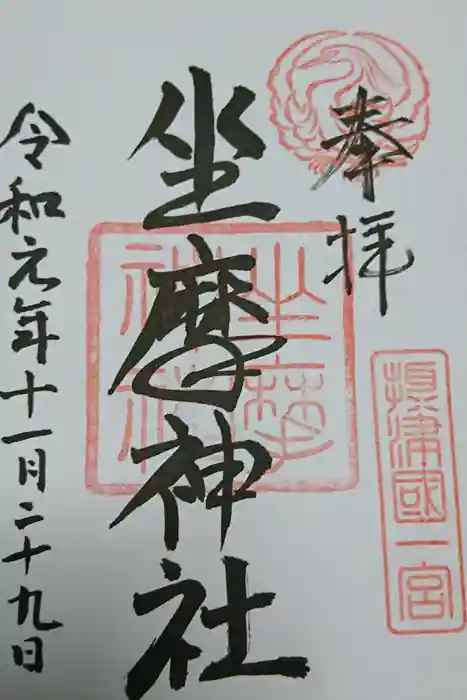 奉拝
摂津國一宮
坐摩神社
坐摩神社
令和元年十一月二十九日